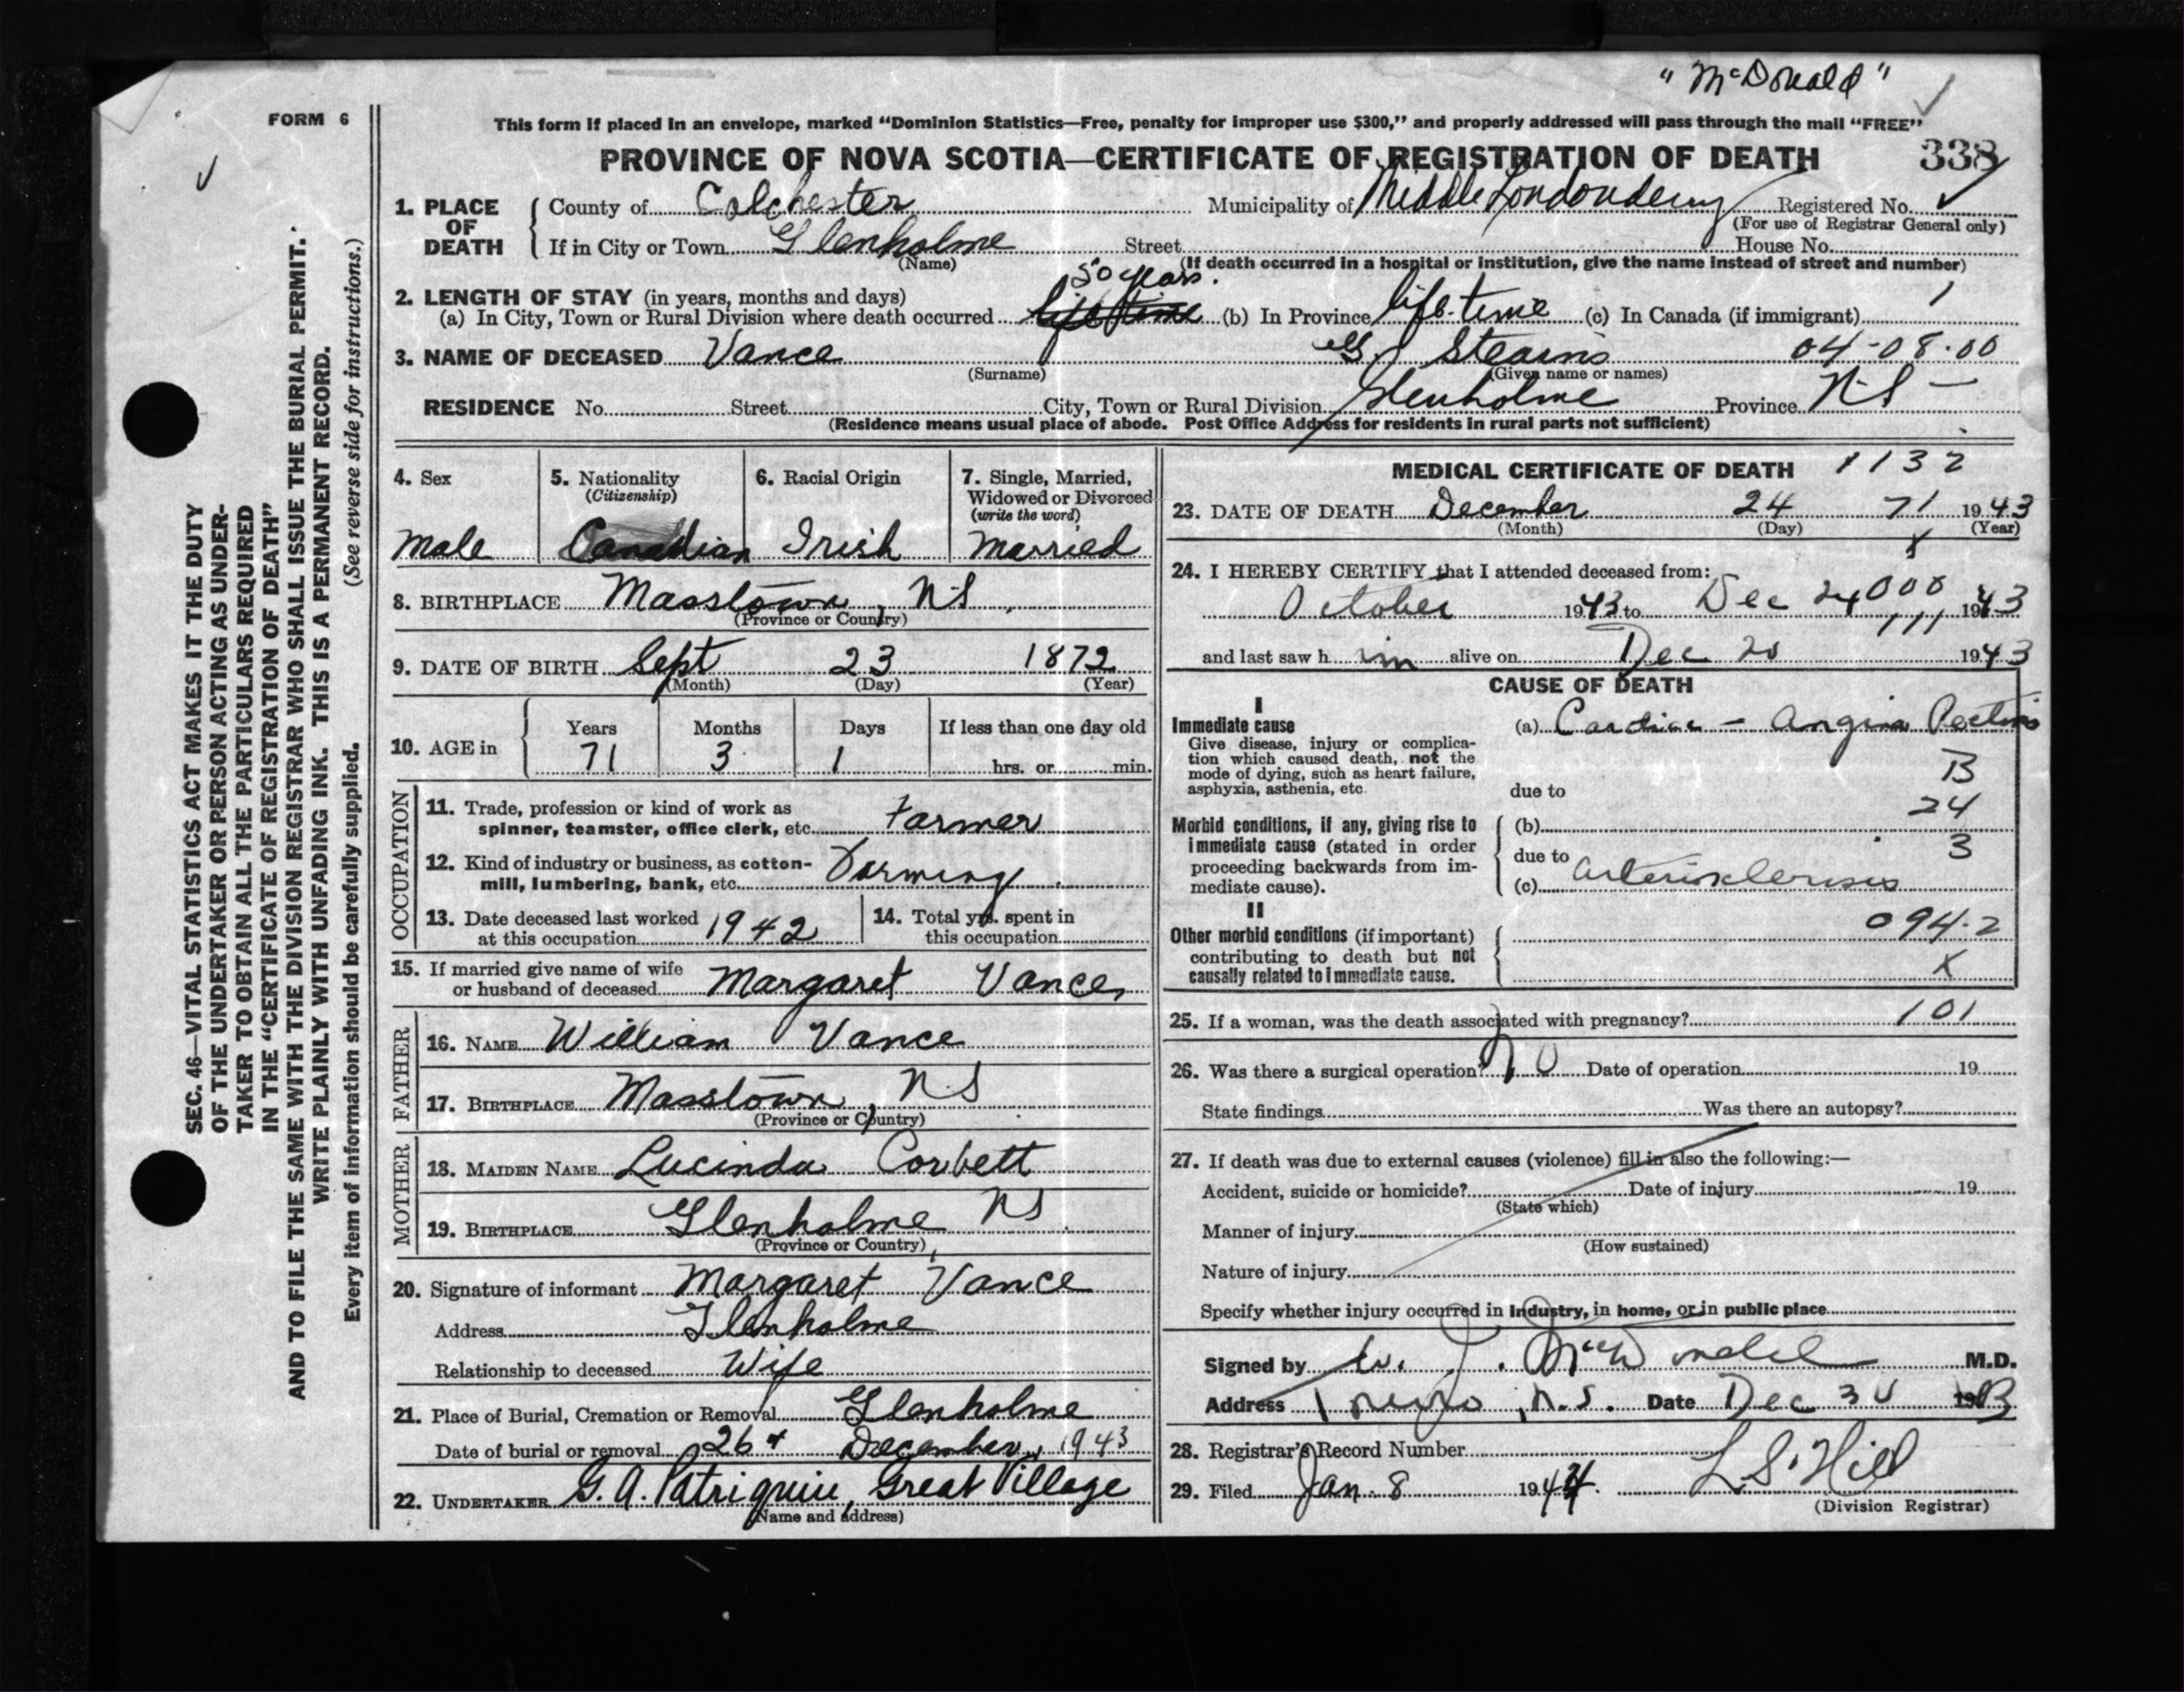 "McDonald"
FORM 6
This form if placed in an envelope, marked "Dominion Statistics—Free, penalty for improper use $300," and properly addressed will pass through the mail "FREE"
PROVINCE OF NOVA SCOTIA—CERTIFICATE OF REGISTRATION OF DEATH 338
1. PLACE OF DEATH
County of Colchester Municipality of Middle Londonderry Registered No.
(For use of Registrar General only)
If in City or Town Glenholme Street House No.
(Name) (If death occurred in a hospital or institution, give the name instead of street and number)
50 years.
2. LENGTH OF STAY (in years, months and days)
(a) In City, Town or Rural Division where death occurred life time (b) In Province life-time (c) In Canada (if immigrant)
3. NAME OF DECEASED Vance G. Stearns 04-08-00
(Surname) (Given name or names)
RESIDENCE No. Street City, Town or Rural Division Glenholme Province N-S-
(Residence means usual place of abode. Post Office Address for residents in rural parts not sufficient)
4. Sex Male
5. Nationality (Citizenship) Canadian
6. Racial Origin Irish
7. Single, Married, Widowed or Divorced (write the word) Married
8. BIRTHPLACE Masstown, N.S.
(Province or Country)
9. DATE OF BIRTH Sept 23 1872
(Month) (Day) (Year)
10. AGE in Years Months Days If less than one day old
71 3 1 hrs. or min.
OCCUPATION
11. Trade, profession or kind of work as
spinner, teamster, office clerk, etc. Farmer
12. Kind of industry or business, as cotton-
mill, lumbering, bank, etc. Farming
13. Date deceased last worked
at this occupation 1942
14. Total yrs. spent in
this occupation
15. If married give name of wife
or husband of deceased Margaret Vance
FATHER
16. NAME William Vance
17. BIRTHPLACE Masstown, N.S
(Province or Country)
MOTHER
18. MAIDEN NAME Lucinda Corbett
19. BIRTHPLACE Glenholme NS
(Province or Country)
20. Signature of informant Margaret Vance
Address Glenholme
Relationship to deceased Wife
21. Place of Burial, Cremation or Removal Glenholme
Date of burial or removal 26 December, 1943
22. UNDERTAKER G. A. Patriquin, Great Village
(Name and address)
MEDICAL CERTIFICATE OF DEATH 1132
23. DATE OF DEATH December 24 71 1943
(Month) (Day) (Year)
24. I HEREBY CERTIFY that I attended deceased from:
October 1943 to Dec 24 000 1943
and last saw h im alive on Dec 20 1943
CAUSE OF DEATH
I
Immediate cause
Give disease, injury or complica-
tion which caused death, not the
mode of dying, such as heart failure,
asphyxia, asthenia, etc.
(a) Cardiac - Angina Pectoris
B
due to
24
Morbid conditions, if any, giving rise to
immediate cause (stated in order
proceeding backwards from im-
mediate cause).
(b)
3
due to
(c) Arteriosclerosis
II
Other morbid conditions (if important)
contributing to death but not
causally related to immediate cause.
094.2
X
25. If a woman, was the death associated with pregnancy? 101
26. Was there a surgical operation? No Date of operation 19
State findings Was there an autopsy?
27. If death was due to external causes (violence) fill in also the following:—
Accident, suicide or homicide? Date of injury 19
(State which)
Manner of injury
(How sustained)
Nature of injury
Specify whether injury occurred in industry, in home, or in public place
Signed by W. J. McDonald M.D.
Address Truro, N.S. Date Dec 30 1943
28. Registrar's Record Number
29. Filed Jan. 8 1944. L S. Hill
(Division Registrar)
SEC. 46—VITAL STATISTICS ACT MAKES IT THE DUTY
OF THE UNDERTAKER OR PERSON ACTING AS UNDER-
TAKER TO OBTAIN ALL THE PARTICULARS REQUIRED
IN THE "CERTIFICATE OF REGISTRATION OF DEATH"
AND TO FILE THE SAME WITH THE DIVISION REGISTRAR WHO SHALL ISSUE THE BURIAL PERMIT.
WRITE PLAINLY WITH UNFADING INK. THIS IS A PERMANENT RECORD.
Every item of information should be carefully supplied. (See reverse side for instructions.)